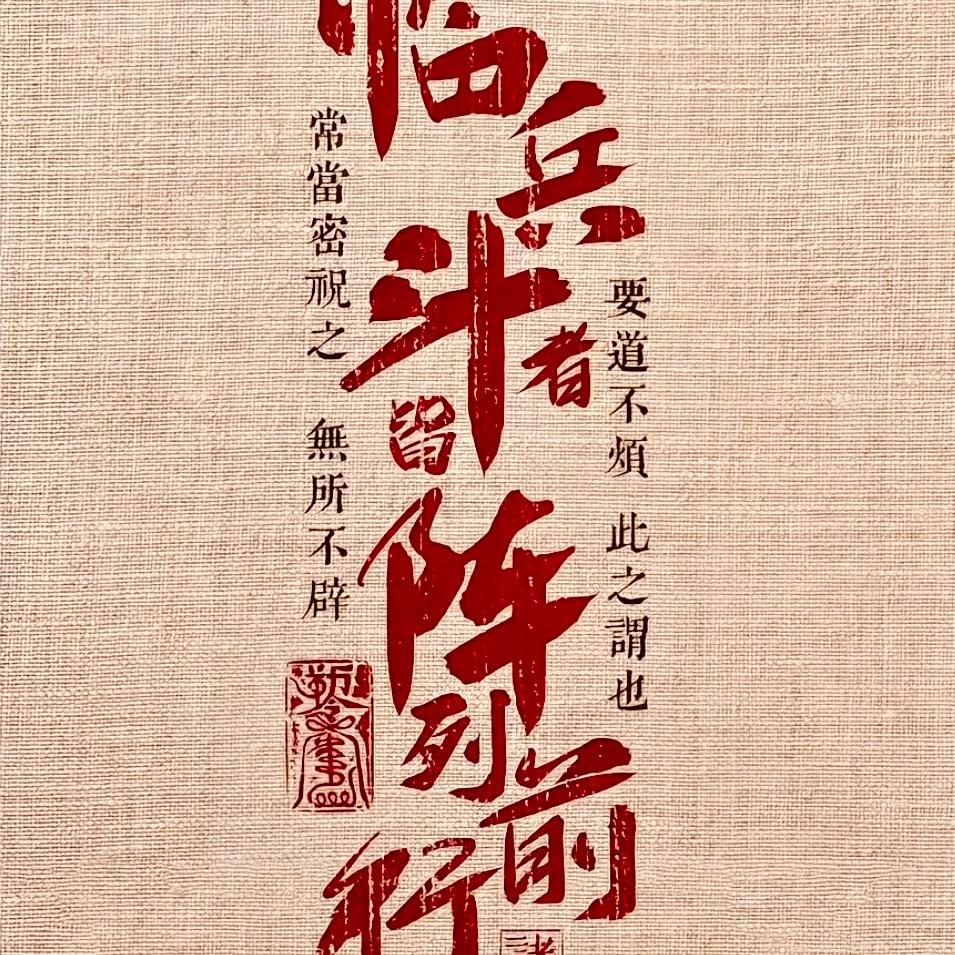 临兵斗者皆阵列前行
要道不煩 此之謂也
常當密祝之 無所不辟